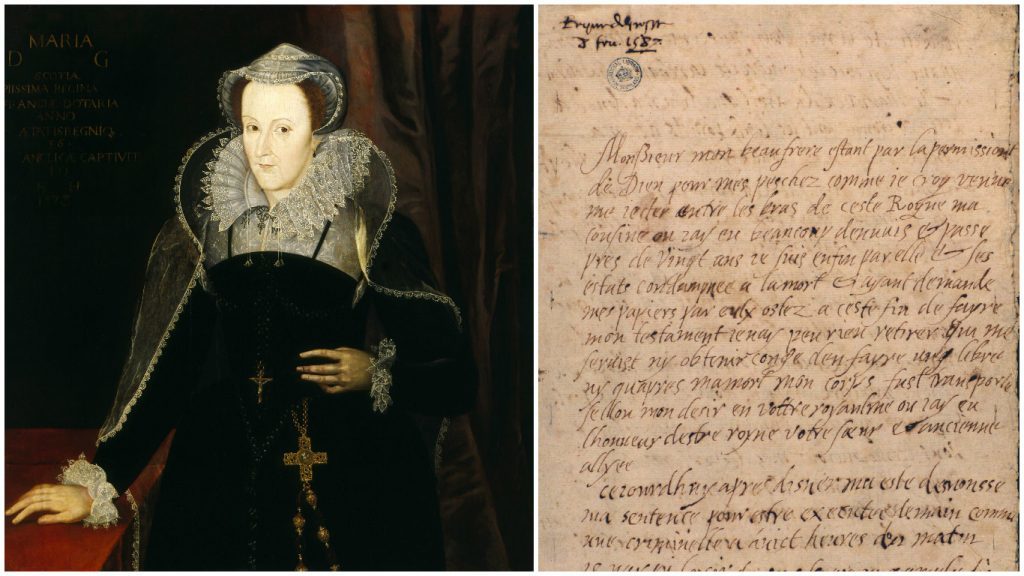 MARIA
D G
SCOTIÆ
PIISSIMA REGINA
FRANCIÆ DOTARIA
ANNO
ÆTATIS REGNIQ
36
ANGLICÆ CAPTIVIT
H
8 feu. 1587
Monssieur mon beaufrere estant par la permission
de Dieu pour mes peschez comme ie croy venue
me ietter entre les bras de ceste Royne ma
cousine ou iay eu beaucoup dennuis & passe
pres de vingt ans ie suis enfin par elle & ses
estats condampnee a la mort & ayant demande
mes papiers par eulx ostez a ceste fin de fayre
mon testament ie nay peu rien retirer qui me
seruist ny obtenir conge den fayre ung libre
ny quapres ma mort mon corps fust transporte
sellon mon desir en vottre royaulme ou iay eu
lhonneur destre royne votre sœur & ancienne
allyee
ceiourdhuy apres disner ma este desnonsse
ma sentence pour estre executee demain comme
une criminelle a huict heures du matin